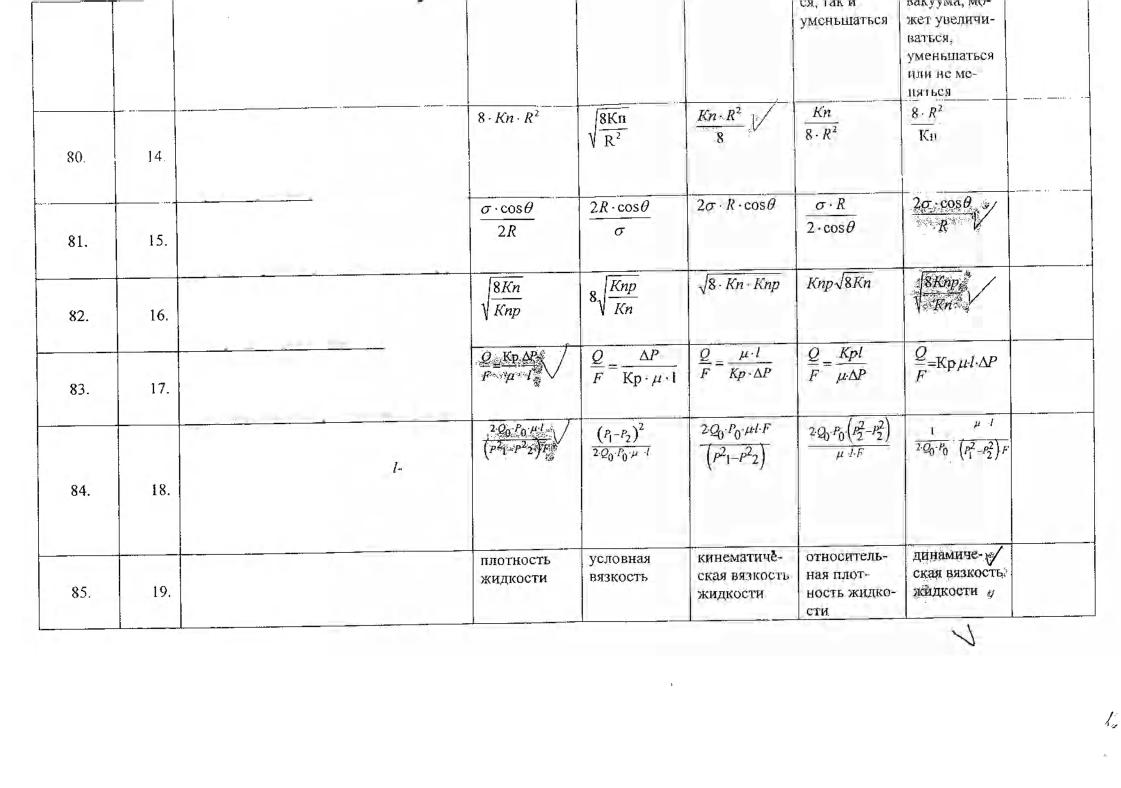 ся, так и
уменьшаться
вакуума, мо-
жет увеличи-
ваться,
уменьшаться
или не ме-
няться
80. 14 8 · Kп · R² √(8Кп/R²) Kп · R²/8 Kп/(8 · R²) 8 · R²/Кп
81. 15. σ · cosθ/2R 2R · cosθ/σ 2σ · R · cosθ σ · R/(2 · cosθ) 2σ · cosθ/R
82. 16. √(8Kп/Kпр) 8√(Kпр/Kп) √(8 · Kп · Kпр) Kпр√8Kп √(8Kпр/Kп)
83. 17. Q/F = Кр ΔP/(μ · l) Q/F = ΔP/(Кр · μ · l) Q/F = μ · l/(Kp · ΔP) Q/F = Kpl/(μ·ΔP) Q/F =Крμ·l·ΔP
84. 18. l- 2·Q₀·P₀·μ·l/((P²1−P²2)F) (P₁−P₂)²/(2·Q₀·P₀·μ ·l) 2·Q₀·P₀·μ·l·F/(P²1−P²2) 2·Q₀·P₀(P₂²−P₂²)/(μ ·l·F) 1/(2·Q₀·P₀) · μ ·l/((P₁²−P₂²)F)
85. 19.
плотность
жидкости
условная
вязкость
кинематиче-
ская вязкость
жидкости
относитель-
ная плот-
ность жидко-
сти
динамиче-
ская вязкость
жидкости